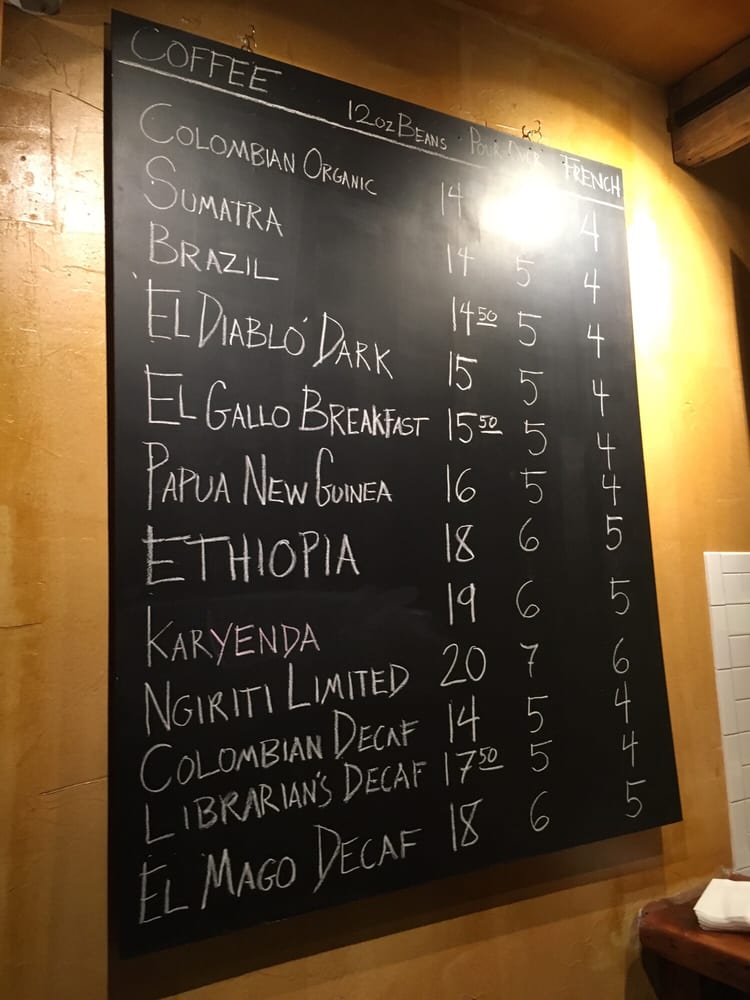 COFFEE 12oz BEANS POUR OVER FRENCH
COLOMBIAN ORGANIC 14 4
SUMATRA 14 5 4
BRAZIL 14 50 5 4
"EL DIABLO" DARK 15 5 4
EL GALLO BREAKFAST 15 50 5 4
PAPUA NEW GUINEA 16 5 4
ETHIOPIA 18 6 5
KARYENDA 19 6 5
NGIRITI LIMITED 20 7 6
COLOMBIAN DECAF 14 5 4
LIBRARIAN'S DECAF 17 50 5 4
EL MAGO DECAF 18 6 5